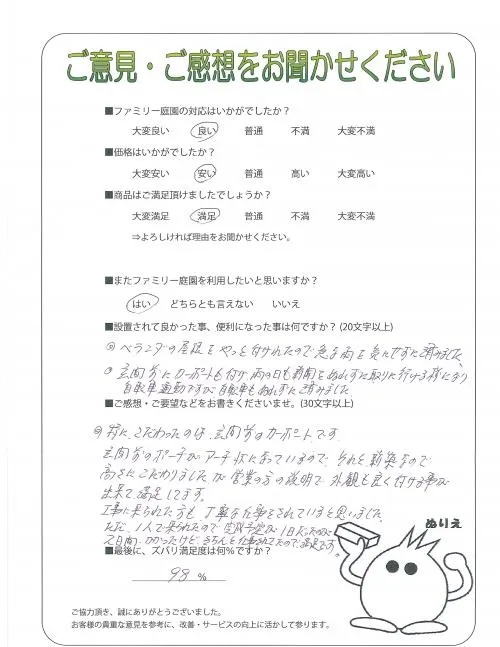 ご意見・ご感想をお聞かせください
■ファミリー庭園の対応はいかがでしたか？
大変良い 良い 普通 不満 大変不満
■価格はいかがでしたか？
大変安い 安い 普通 高い 大変高い
■商品はご満足頂けましたでしょうか？
大変満足 満足 普通 不満 大変不満
⇒よろしければ理由をお聞かせください。
■またファミリー庭園を利用したいと思いますか？
はい どちらとも言えない いいえ
■設置されて良かった事、便利になった事は何ですか？(20文字以上)
ベランダの屋根をやっと付けれたので急な雨を気にせずに済みました。
玄関前にカーポートも付け雨の日も新聞をぬれずに取りに行ける様になり
自転車通勤ですが自転車もぬれずに済みました。
■ご感想・ご要望などをお書きくださいませ。(30文字以上)
特にこだわったのは、玄関前のカーポートです。
玄関前のポーチがアーチ状になっているので、それと新築なので
高さにこだわりましたが営業の方の説明で外観も良く付ける事が
出来て満足してます。
工事に来られた方も丁寧な仕事をされていると思いました。
ただ、1人で来られたので 予定が1日だったのが
2日間かかったけど、きちんと仕事されてたので満足です。
■最後に、ズバリ満足度は何%ですか？
98 %
ぬりえ
ご協力頂き、誠にありがとうございました。
お客様の貴重な意見を参考に、改善・サービスの向上に活かして参ります。